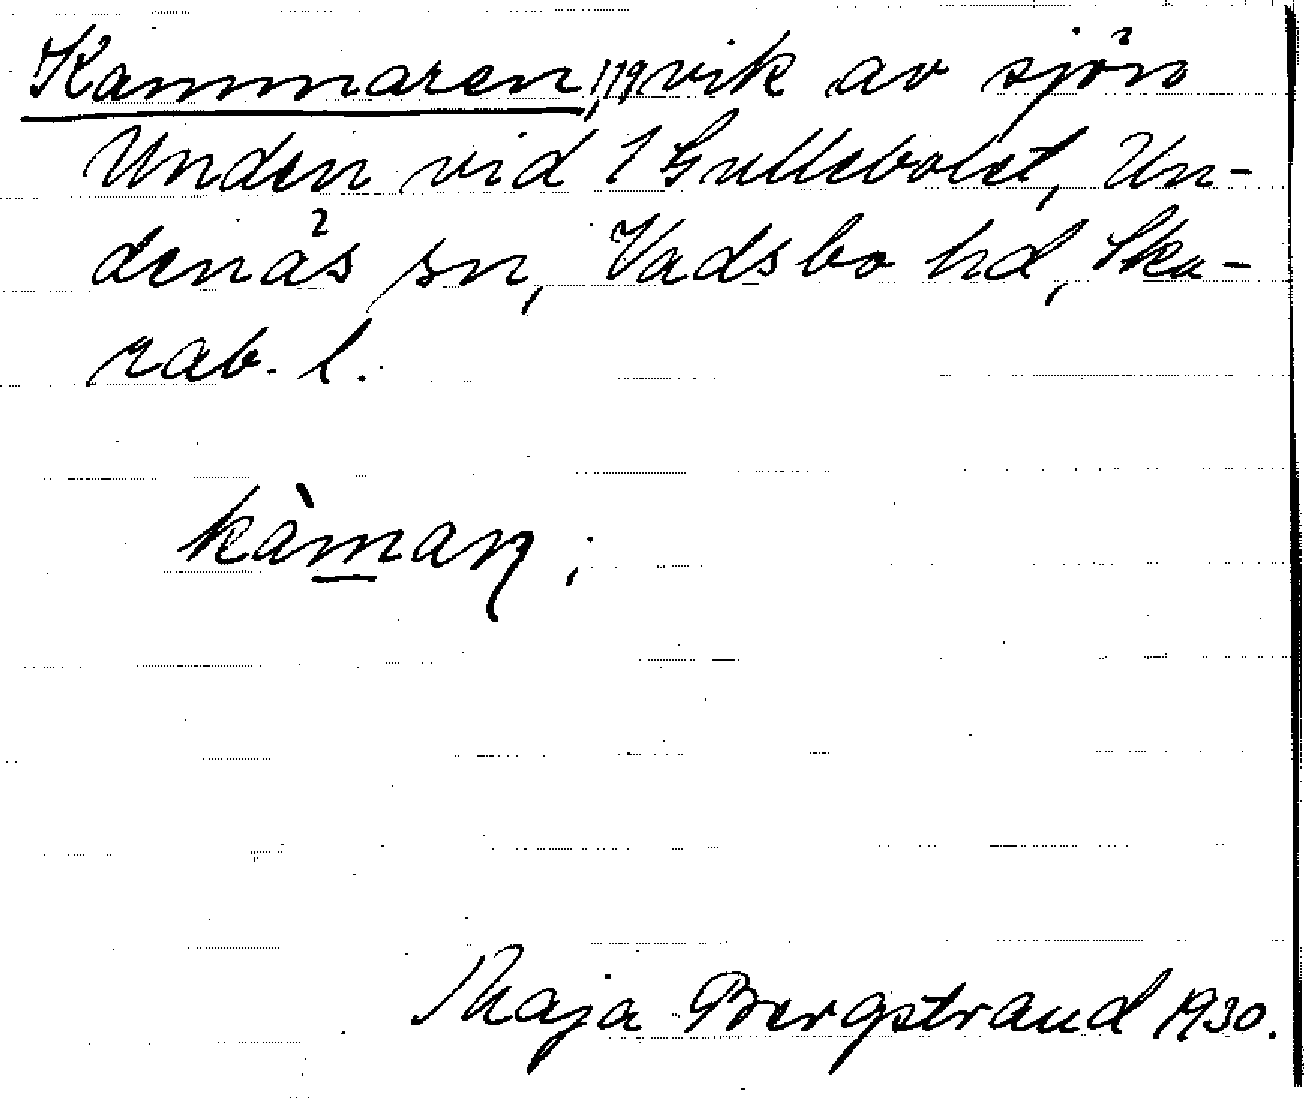 Kammaren, 119 vik av sjön
Unden vid 1 Gullebolet, Un-
denäs sn, Vadsbo hd, Ska-
rab. l.
kàmaɳ;
Maja Bergstrand 1930.